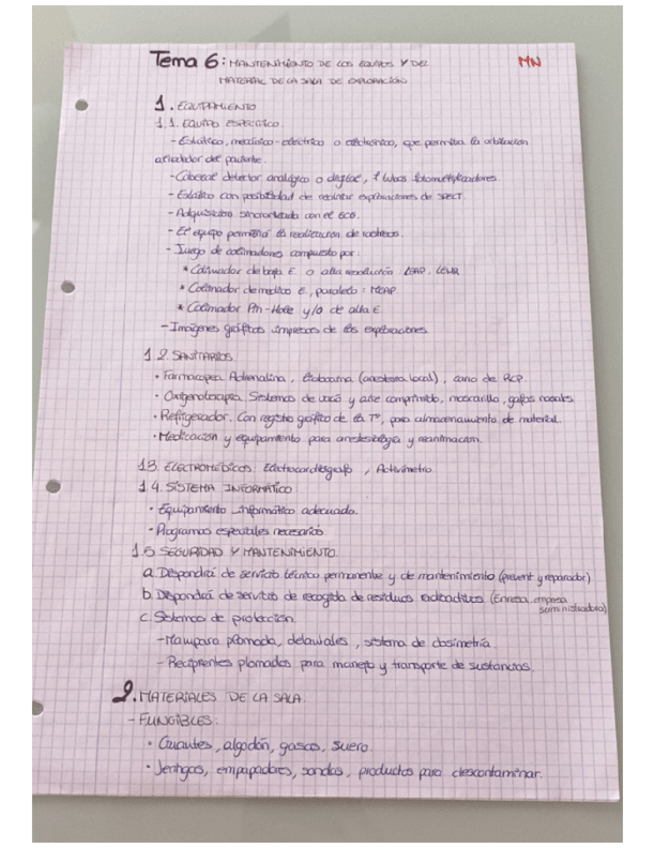 Tema 6: MANTENIMIENTO DE LOS EQUIPOS Y DEL
MN
MATERIAL DE LA SALA DE EXPLORACIÓN
1. EQUIPAMIENTO
1.1. EQUIPO ESPECÍFICO
- Estático, mecánico-eléctrico o electrónico, que permita la orbitación
alrededor del paciente.
- Cabezal detector analógico o digital, tubos fotomultiplicadores.
- Estático con posibilidad de realizar exploraciones de SPECT.
- Adquisición sincronizada con el ECG.
- El equipo permitirá la realización de rastreos.
- Juego de colimadores compuesto por:
* Colimador de baja E. o alta resolución: LEAP, LEHR
* Colimador de media E, paralelo: MEAP.
* Colimador Pin-Hole y/o de alta E.
- Imágenes gráficas impresas de las exploraciones.
1.2. SANITARIOS
· Farmacopea Adrenalina, lidocaína (anestesia local), carro de RCP.
· Oxigenoterapia. Sistemas de vacío y aire comprimido, mascarilla, gafas nasales.
· Refrigerador. Con registro gráfico de la Tº, para almacenamiento de material.
· Medicación y equipamiento para anestesiología y reanimación.
1.3. ELECTROMÉDICOS: Electrocardiógrafo, Activímetro
1.4. SISTEMA INFORMÁTICO
· Equipamiento informático adecuado.
· Programas especiales necesarios.
1.5 SEGURIDAD Y MANTENIMIENTO
a. Dispondrá de servicio técnico permanente y de mantenimiento (prevent y reparador)
b. Dispondrá de servicio de recogida de residuos radiactivos (Enresa, empresa
suministradora)
c. Sistemas de protección.
- Mampara plomada, delantales, sistema de dosimetría.
- Recipientes plomados para manejo y transporte de sustancias.
2. MATERIALES DE LA SALA
- FUNGIBLES:
· Guantes, algodón, gasas, suero.
· Jeringas, empapadores, sondas, productos para descontaminar.